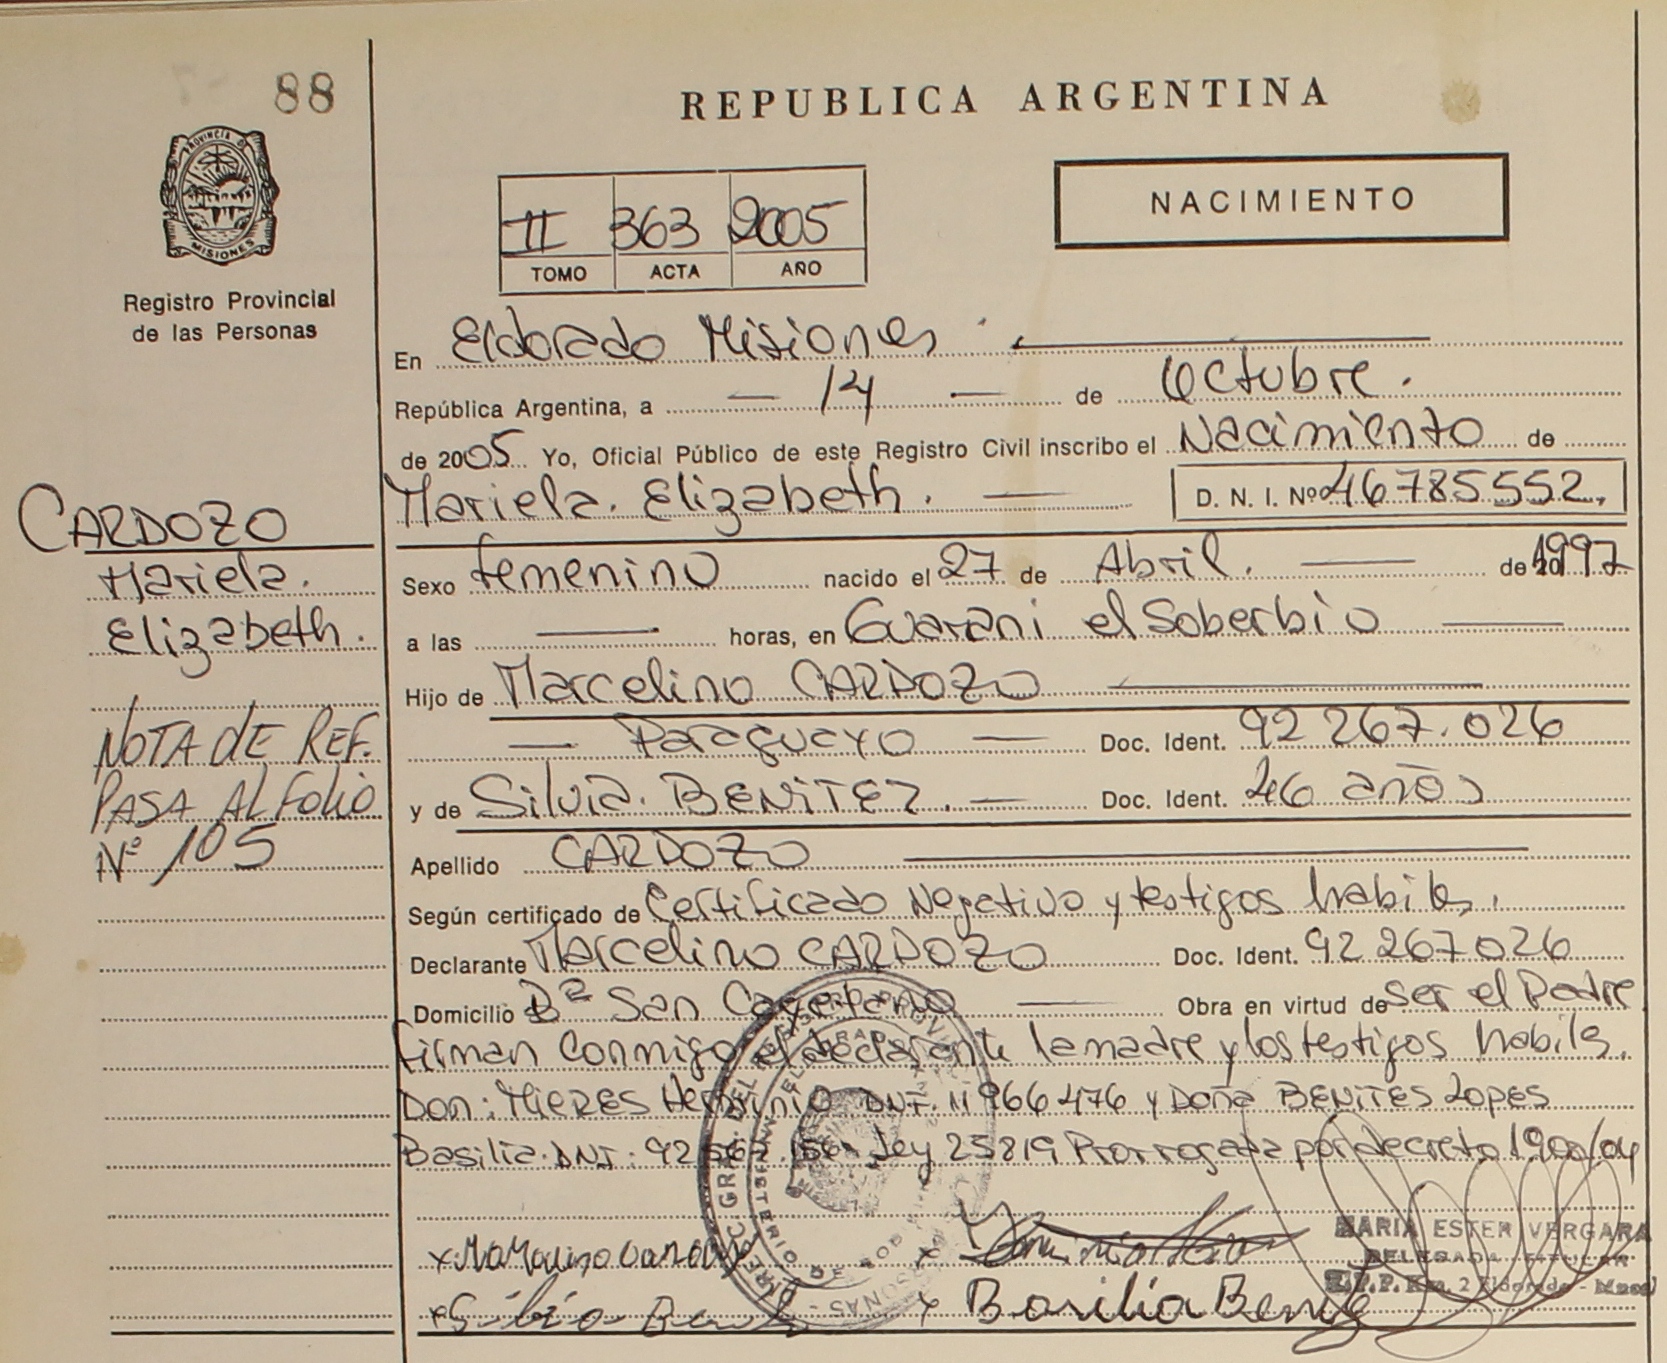 88
REPUBLICA ARGENTINA
PROVINCIA DE
MISIONES
Registro Provincial
de las Personas
NACIMIENTO
II 363 2005
TOMO ACTA AÑO
En Eldorado Misiones
República Argentina, a — 14 — de Octubre.
de 2005 Yo, Oficial Público de este Registro Civil inscribo el Nacimiento de
Mariela. Elizabeth. — D. N. I. Nº 46785552.
CARDOZO
Mariela.
Elizabeth.
Sexo femenino nacido el 27 de Abril. — de 1997
a las — horas, en Guarani el Soberbio —
Hijo de Marcelino CARDOZO —
— Paraguayo — Doc. Ident. 92 267.026
y de Silvia. BENITEZ. — Doc. Ident. 46 años
Apellido CARDOZO —
NOTA DE REF.
PASA AL FOLIO
Nº 105
Según certificado de Certificado Negativo y testigos habiles.
Declarante Marcelino CARDOZO Doc. Ident. 92 267026
Domicilio Bº San Cayetano — Obra en virtud de ser el Padre
firman conmigo el declarante la madre y los testigos habiles.
Don: MIERES DNI. 11 966 476 y Doña BENITES LOPES
Basilia. DNI: 92 Ley 25819 Prorrogada por decreto 1900/04
MARIA ESTER VERGARA
DELEGADA TITULAR
R.P.P. Km. 2 Eldorado - Mnes
Basilia Benitez